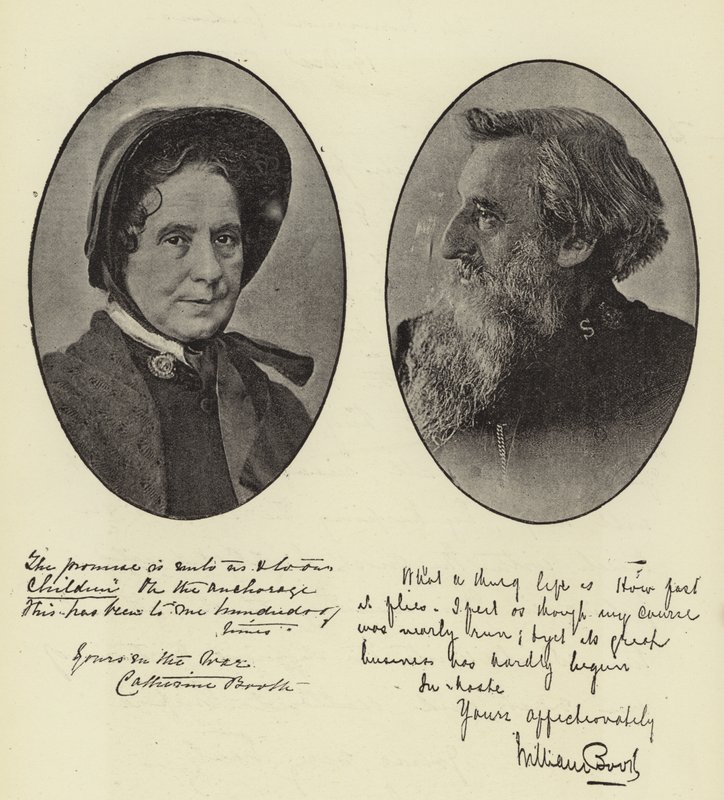 The promise is unto us & to our
Children" Oh the anchorage
This has been to me hundreds of
times".
Yours in the War.
Catherine Booth
S
What a thing life is How fast
it flies. I feel as though my course
was nearly run; & yet its great
business has hardly begun
In haste
Yours affectionately
William Booth